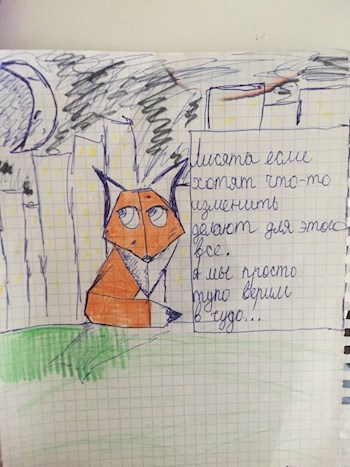 Лисята если
хотят что-то
изменить
делают для этого
все.
А мы просто
тупо верим
в чудо...